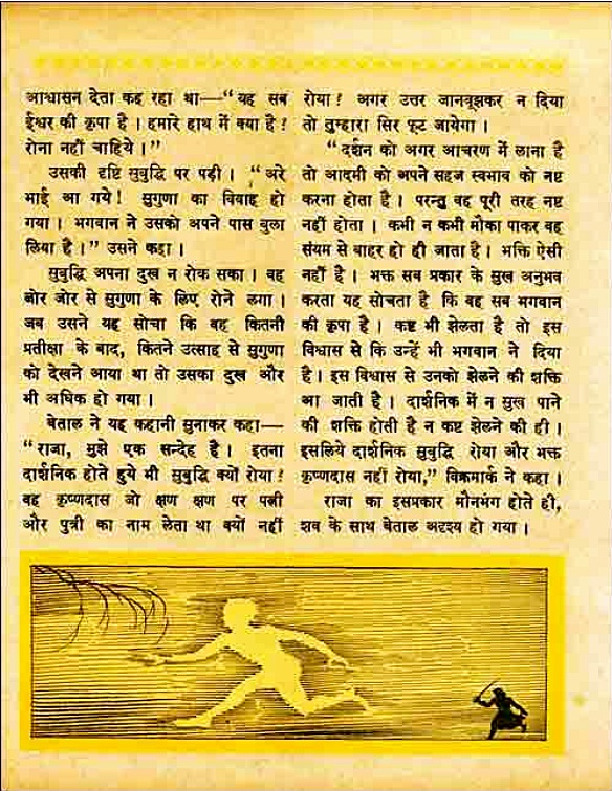 आश्वासन देता कह रहा था—“यह सब
ईश्वर की कृपा है। हमारे हाथ में क्या है!
रोना नहीं चाहिये।”
उसकी दृष्टि सुबुद्धि पर पड़ी। “अरे
भाई आ गये! सुगुणा का विवाह हो
गया। भगवान ने उसको अपने पास बुला
लिया है।” उसने कहा।
सुबुद्धि अपना दुख न रोक सका। वह
जोर जोर से सुगुणा के लिए रोने लगा।
जब उसने यह सोचा कि वह कितनी
प्रतीक्षा के बाद, कितने उत्साह से सुगुणा
को देखने आया था तो उसका दुख और
भी अधिक हो गया।
बेताल ने यह कहानी सुनाकर कहा—
“राजा, मुझे एक सन्देह है। इतना
दार्शनिक होते हुये भी सुबुद्धि क्यों रोया!
वह कृष्णदास जो क्षण क्षण पर पत्नी
और पुत्री का नाम लेता था क्यों नहीं
रोया! अगर उत्तर जानबूझकर न दिया
तो तुम्हारा सिर फूट जायेगा।
“दर्शन को अगर आचरण में लाना है
तो आदमी को अपने सहज स्वभाव को नष्ट
करना होता है। परन्तु वह पूरी तरह नष्ट
नहीं होता। कभी न कभी मौका पाकर वह
संयम से बाहर हो ही जाता है। भक्ति ऐसी
नहीं है। भक्त सब प्रकार के सुख अनुभव
करता यह सोचता है कि वह सब भगवान
की कृपा है। कष्ट भी झेलता है तो इस
विश्वास से कि उन्हें भी भगवान ने दिया
है। इस विश्वास से उनको झेलने की शक्ति
आ जाती है। दार्शनिक में न सुख पाने
की शक्ति होती है न कष्ट झेलने की ही।
इसलिये दार्शनिक सुबुद्धि रोया और भक्त
कृष्णदास नहीं रोया,” विक्रमार्क ने कहा।
राजा का इसप्रकार मौनभंग होते ही,
शव के साथ बेताल अदृश्य हो गया।